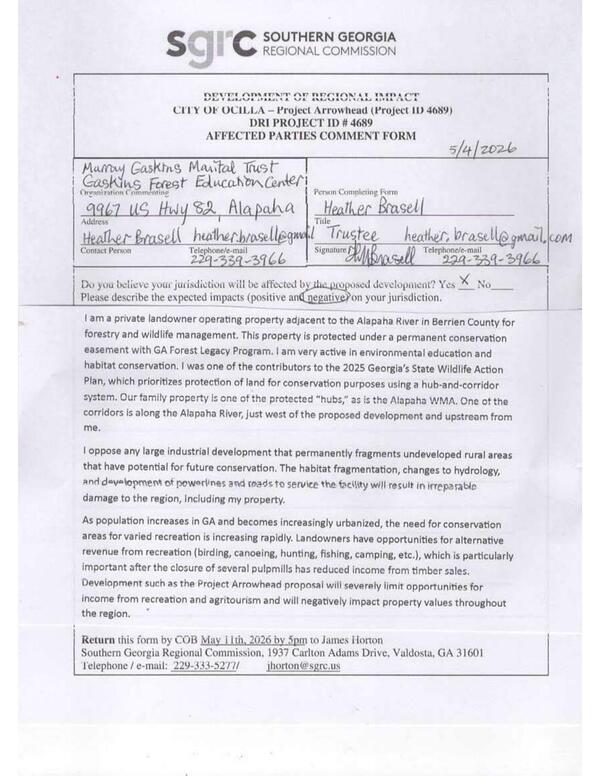 sgrc SOUTHERN GEORGIA
REGIONAL COMMISSION
DEVELOPMENT OF REGIONAL IMPACT
CITY OF OCILLA – Project Arrowhead (Project ID 4689)
DRI PROJECT ID # 4689
AFFECTED PARTIES COMMENT FORM
5/4/2026
Murray Gaskins Marital Trust
Gaskins Forest Education Center
Organization Commenting
Person Completing Form
9967 US Hwy 82, Alapaha
Heather Brasell
Address
Title
Heather Brasell heather.brasell@gmail
Trustee heather.brasell@gmail.com
Contact Person Telephone/e-mail
Signature Telephone/e-mail
229-339-3966
229-339-3966
Do you believe your jurisdiction will be affected by the proposed development? Yes X No
Please describe the expected impacts (positive and negative) on your jurisdiction.
I am a private landowner operating property adjacent to the Alapaha River in Berrien County for
forestry and wildlife management. This property is protected under a permanent conservation
easement with GA Forest Legacy Program. I am very active in environmental education and
habitat conservation. I was one of the contributors to the 2025 Georgia's State Wildlife Action
Plan, which prioritizes protection of land for conservation purposes using a hub-and-corridor
system. Our family property is one of the protected "hubs," as is the Alapaha WMA. One of the
corridors is along the Alapaha River, just west of the proposed development and upstream from
me.
I oppose any large industrial development that permanently fragments undeveloped rural areas
that have potential for future conservation. The habitat fragmentation, changes to hydrology,
and development of powerlines and roads to service the facility will result in irreparable
damage to the region, including my property.
As population increases in GA and becomes increasingly urbanized, the need for conservation
areas for varied recreation is increasing rapidly. Landowners have opportunities for alternative
revenue from recreation (birding, canoeing, hunting, fishing, camping, etc.), which is particularly
important after the closure of several pulpmills has reduced income from timber sales.
Development such as the Project Arrowhead proposal will severely limit opportunities for
income from recreation and agritourism and will negatively impact property values throughout
the region.
Return this form by COB May 11th, 2026 by 5pm to James Horton
Southern Georgia Regional Commission, 1937 Carlton Adams Drive, Valdosta, GA 31601
Telephone / e-mail: 229-333-5277/ jhorton@sgrc.us